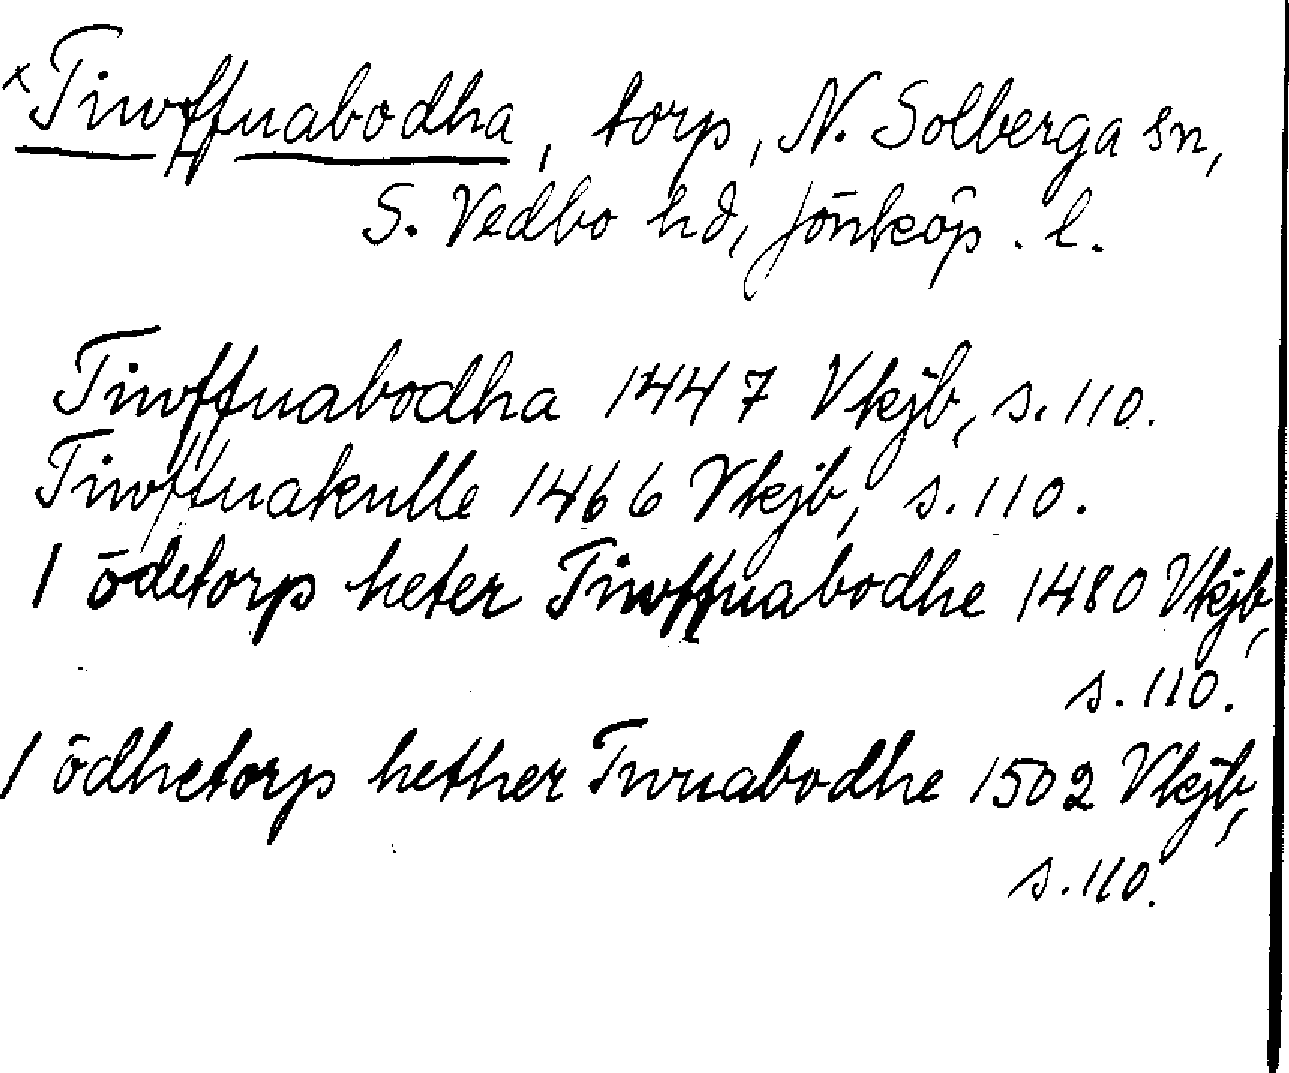 x Tiwffuabodha, torp, N. Solberga sn,
S. Vedbo hd, Jönköp. l.
Tiwffuabodha 1447 Vkjb, s. 110.
Tiwffuakulle 1466 Vkjb, s. 110.
1 ödetorp heter Tiwffuabodhe 1480 Vkjb,
s. 110.
1 ödhetorp hether Twuabodhe 1502 Vkjb,
s. 110.